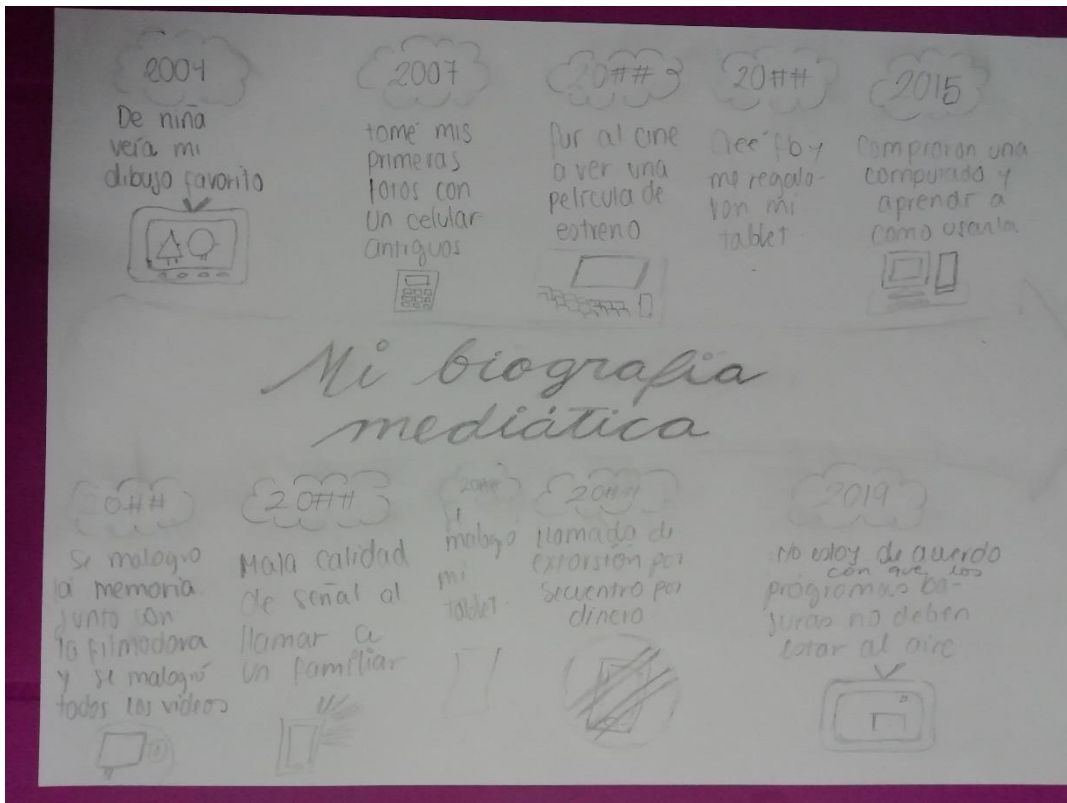 2004
De niña
veía mi
dibujo favorito
2007
tomé mis
primeras
fotos con
un celular
antiguos
20##
fui al cine
a ver una
película de
estreno
20##
Creé fb y
me regala-
ron mi
tablet
2015
Compraron una
computado y
aprendí a
como usarla
Mi biografía
mediática
20##
Se malogro
la memoria
junto con
la filmadora
y se malogró
todos los videos
20##
Mala calidad
de señal al
llamar a
un familiar
20##
malogro
mi
tablet.
20##
llamada de
extorsión por
secuentro por
dinero
2019
No estoy de acuerdo
con que los
programas ba-
suras no deben
estar al aire